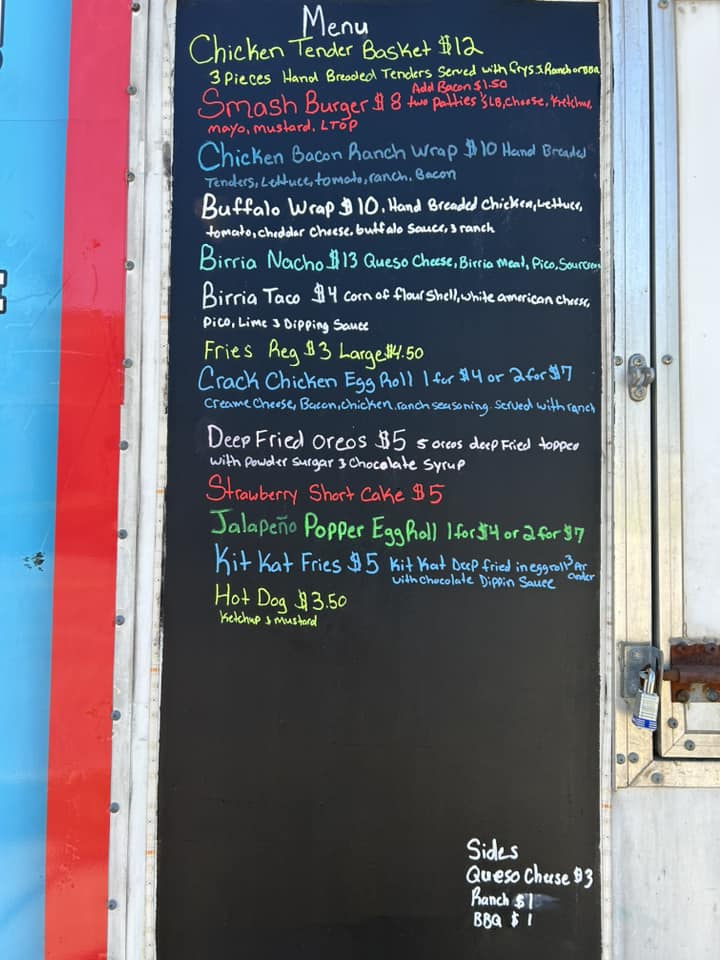 Menu
Chicken Tender Basket $12
3 Pieces Hand Breaded Tenders Served with frys & Ranch or BBQ
Add Bacon $1.50
Smash Burger $8 two patties 1/3 LB, Cheese, Ketchup,
mayo, mustard, LTOP
Chicken Bacon Ranch Wrap $10 Hand Breaded
Tenders, Lettuce, tomato, ranch. Bacon
Buffalo Wrap $10, Hand Breaded Chicken, Lettuce,
tomato, cheddar cheese, buffalo sauce, & ranch
Birria Nacho $13 Queso Cheese, Birria Meat, Pico, Sourcream
Birria Taco $4 Corn of flour Shell, white american cheese,
Pico, Lime & Dipping Sauce
Fries Reg $3 Large $4.50
Crack Chicken Egg Roll 1 for $4 or 2 for $7
Creame Cheese, Bacon, chicken, ranch seasoning. Served with ranch
Deep Fried Oreos $5 5 oreos deep Fried topped
with Powder Surgar & Chocolate Syrup
Strawberry Short Cake $5
Jalapeño Popper Egg Roll 1 for $4 or 2 for $7
Kit Kat Fries $5 Kit Kat Deep fried in eggroll 3 Per order
with Chocolate Dippin Sauce
Hot Dog $3.50
Ketchup & mustard
Sides
Queso Cheese $3
Ranch $1
BBQ $1